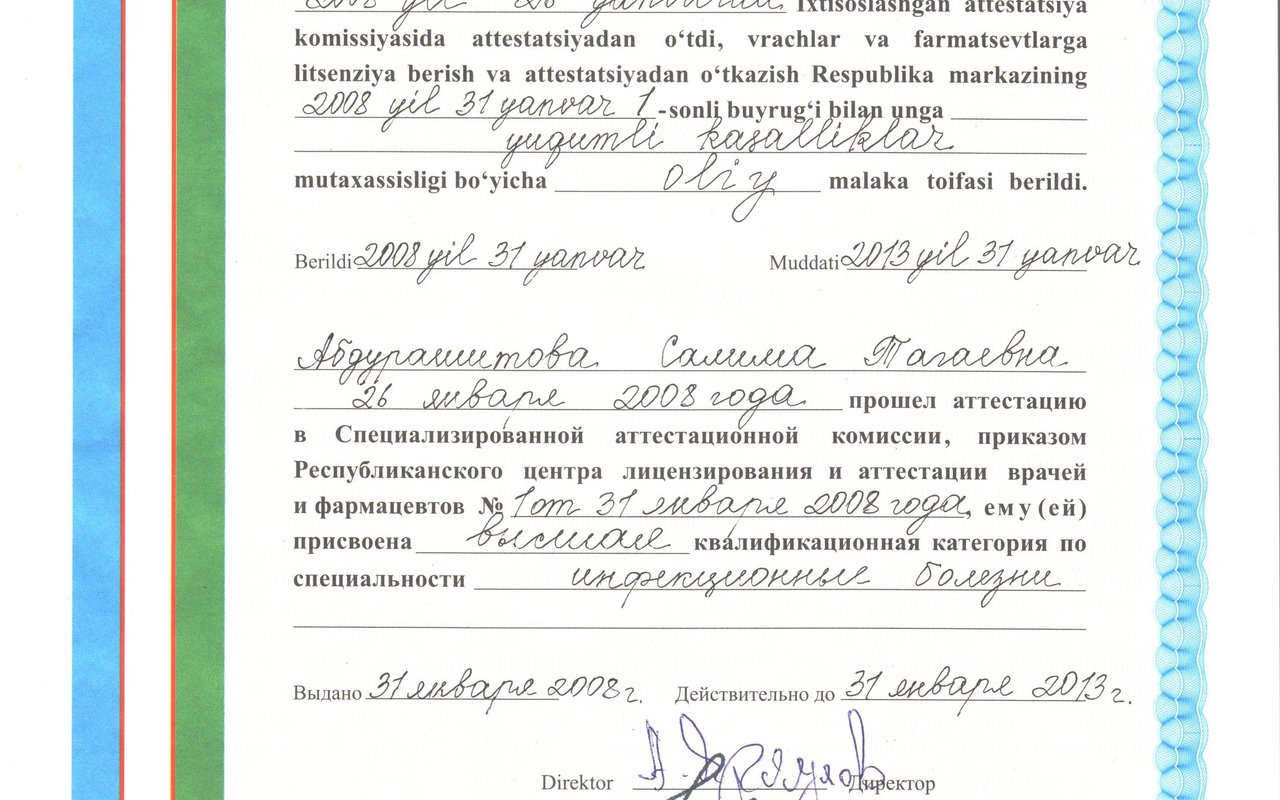 2008 yil 26 yanvarda Ixtisoslashgan attestatsiya
komissiyasida attestatsiyadan o‘tdi, vrachlar va farmatsevtlarga
litsenziya berish va attestatsiyadan o‘tkazish Respublika markazining
2008 yil 31 yanvar 1 -sonli buyrug‘i bilan unga
yuqumli kasalliklar
mutaxassisligi bo‘yicha oliy malaka toifasi berildi.
Berildi 2008 yil 31 yanvar Muddati 2013 yil 31 yanvar
Абдурашитова Салима Тагаевна
26 января 2008 года прошел аттестацию
в Специализированной аттестационной комиссии, приказом
Республиканского центра лицензирования и аттестации врачей
и фармацевтов № 1 от 31 января 2008 года, ему (ей)
присвоена высшая квалификационная категория по
специальности инфекционные болезни
Выдано 31 января 2008 г. Действительно до 31 января 2013 г.
Direktor Директор